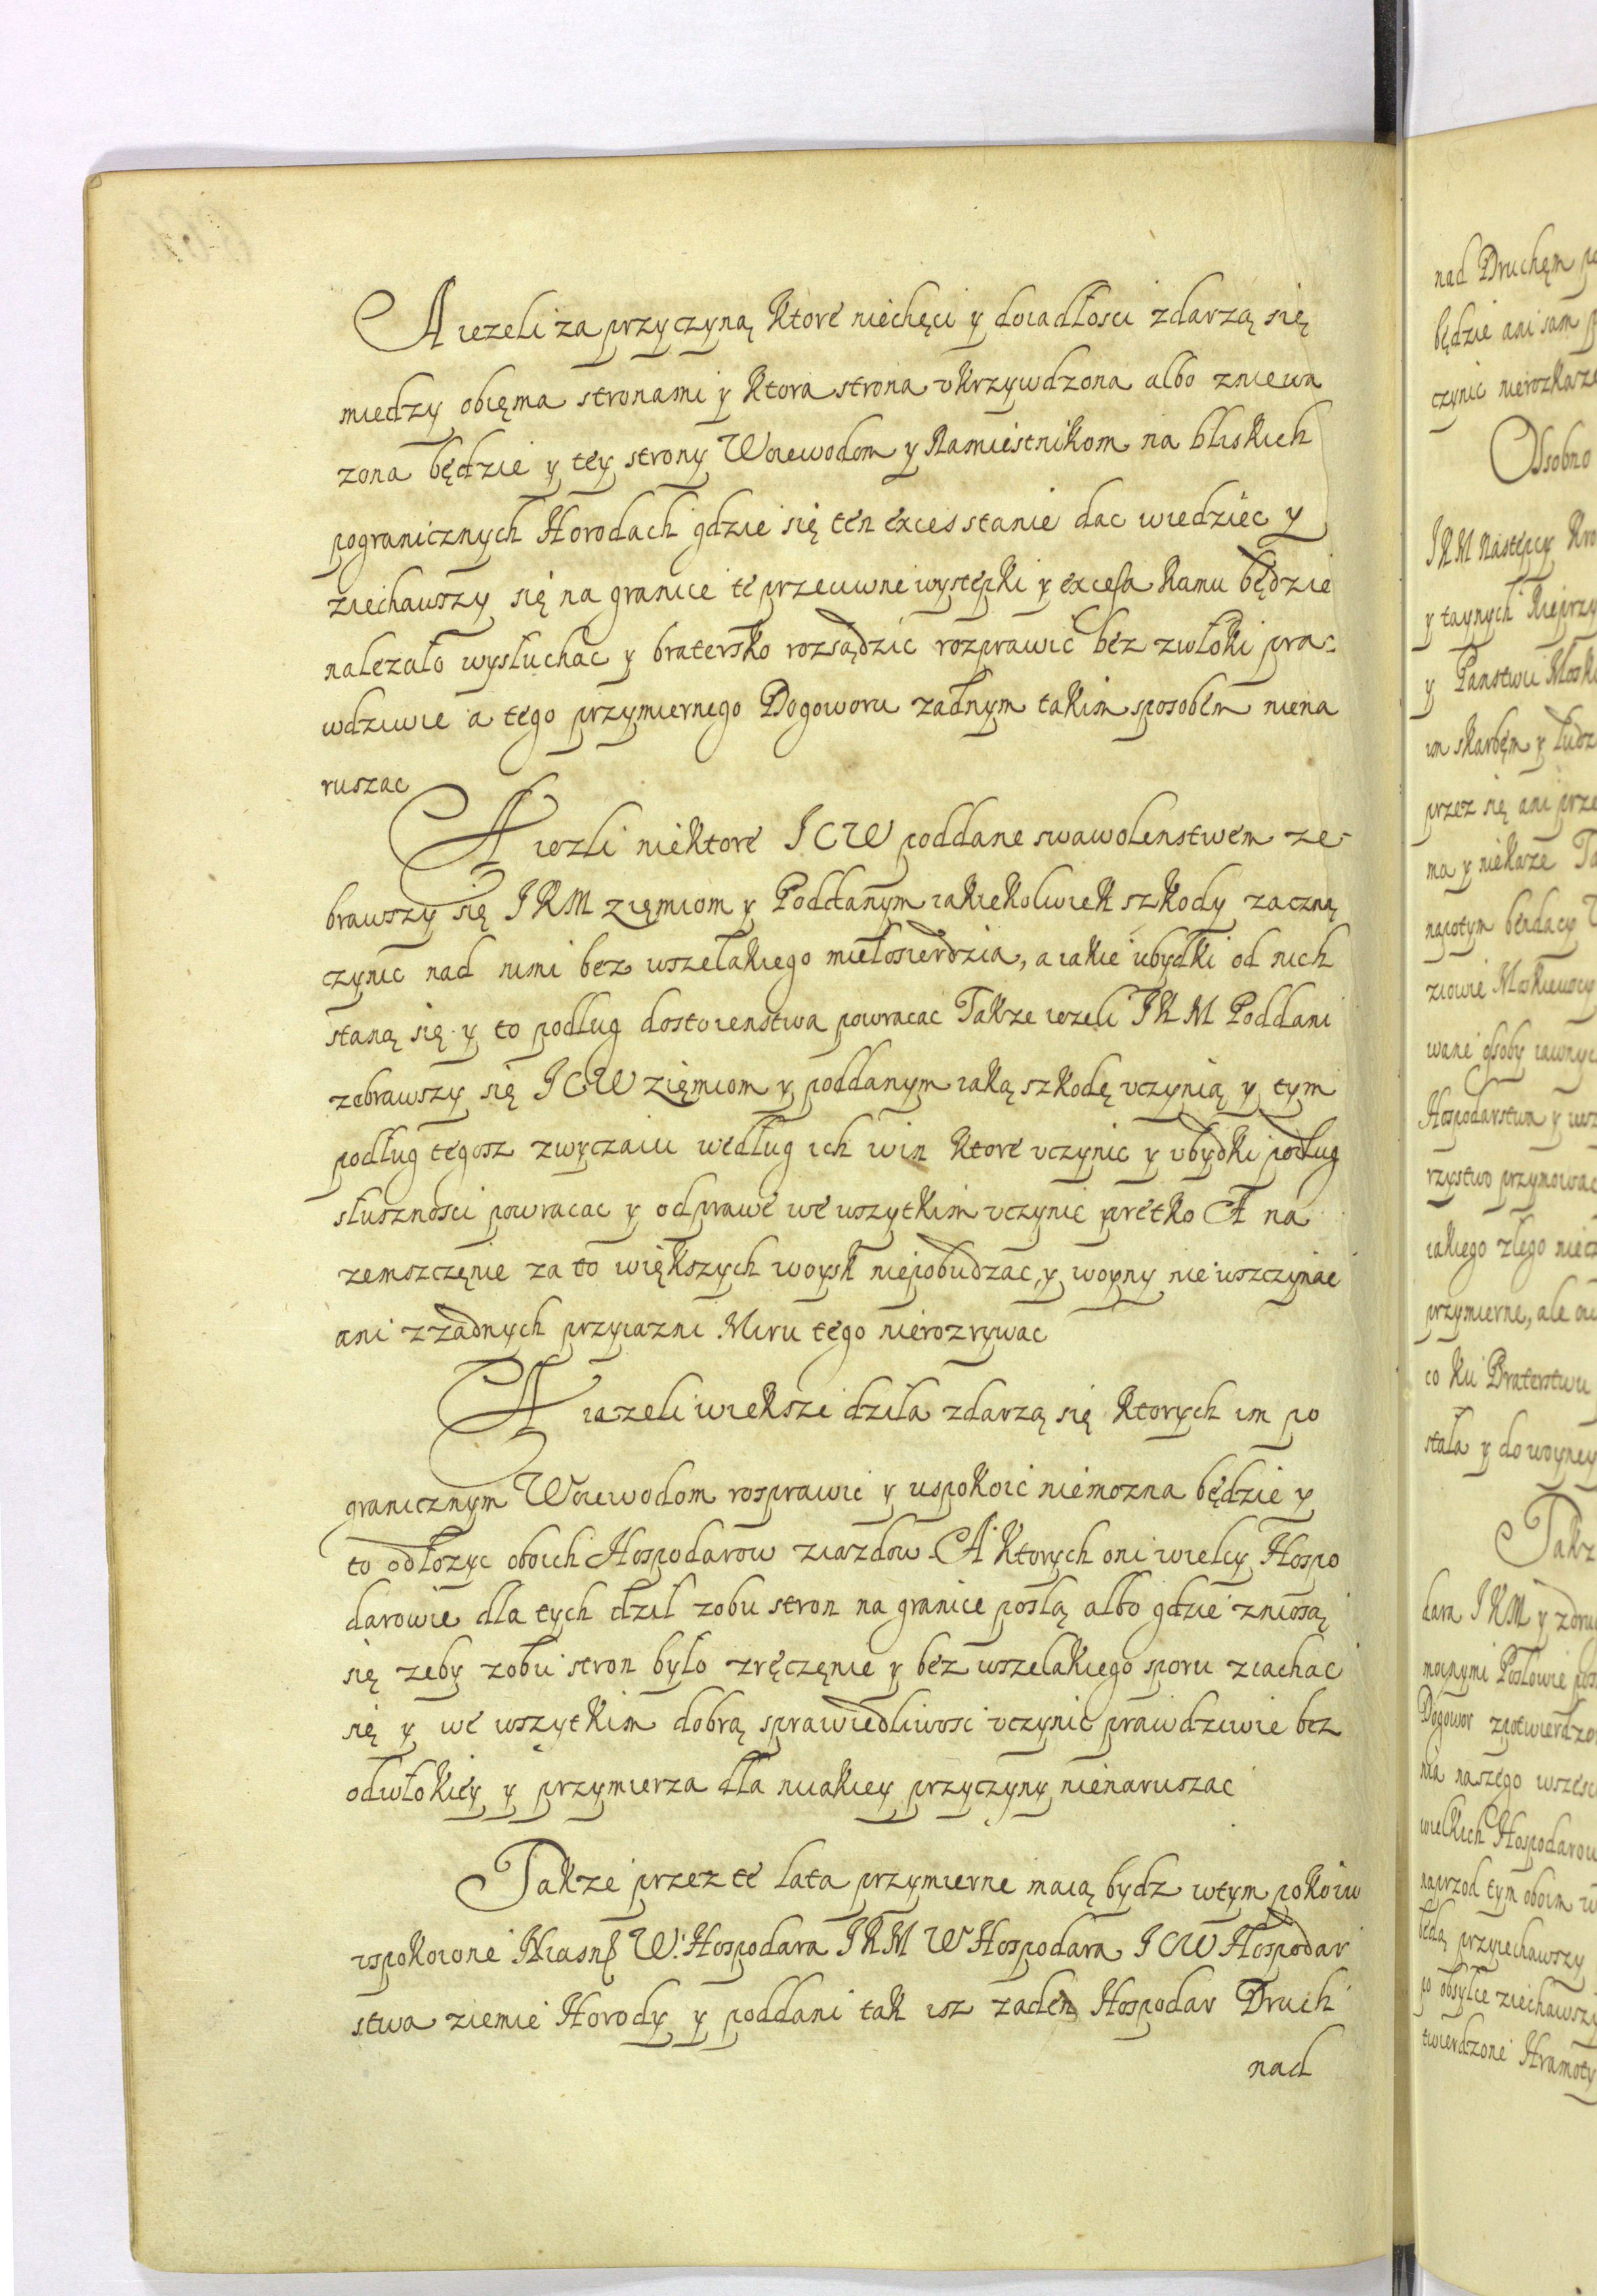 A iezeli za przyczyną ktore niechęci y doiadłosci zdarzą się
miedzy obięma stronami y ktora strona vkrzywdzona albo zniewa
zona będzie y tey strony Woiewodom y Namiestnikom na bliskich
pogranicznych Horodach gdzie się ten exces stanie dac wiedziec y
ziechawszy się na granice te przeciwne wystepki y excessa kamu będzie
nalezało wysłuchac y bratersko rozsądzic rozprawic bez zwłoki pra-
wdziwie a tego przymiernego Dogoworu zadnym takim sposobem niena
ruszac
A iezli niektore I C W poddane swawolenstwem ze-
brawszy się I K M zięmiom y Poddanym iakiekolwiek szkody zaczną
czynic nad nimi bez wszelakiego miełosierdzia, a iakie ubydki od nich
staną się y to podług dostoienstwa powracac Takze iezeli I K M Poddani
zebrawszy się I C W zięmiom y poddanym iaką szkodę vczynią y tym
podług tegosz zwyczaiu według ich win ktore vczynic y vbydki podług
słusznosci powracac y odprawe we wszytkim vczynic prętko A na
zemszczęnie za to większych woysk niepobudzac, y woyny nie wszczynac
ani z zadnych przyiazni Miru tego nierozrywac
A iazeli wieksze dziła zdarzą się ktorych im po
granicznym Woiewodom rosprawic y uspokoic niemozna będzie y
to odłozyc oboich Hospodarow ziazdow. A ktorych oni wielcy Hospo
darowie dla tych dził zobu stron na granice poslą albo gdzie zniosą
się zeby zobu stron było zręczęnie y bez wszelakiego sporu ziachac
się y we wszytkim dobrą sprawiedliwosc vczynic prawdziwie bez
odwłokiey y przymierza dla niiakiey przyczyny nienaruszac
Takze przez te lata przymierne maią bydz wtym pokoiu
vspokoione W. Hospodara I K M W Hospodara I C W Hospodar
stwa ziemie Horody y poddani tak isz zaden Hospodar Druch
nad
nad Druchęm
będzie ani sam
czynic nierozkaze
Osobno
I K M Nastepcy
y taynych
y Panstwu
im skarbęm y
przez się ani prze
ma y niekaze
napotym bendacy
ziowie Moskiewscy
wane osoby
Hospodarstwa y
rzystwo przymowac
iakiego złego
przymierne, ale
co ku Braterstwu
stała y do woyney
dara I K M y
mocnymi Posłowie
Dogowor
nia naszego
wielkich Hospodarow
naprzod tym oboim
będą przyiechawszy
po obsyłce ziechawszy
twierdzone Hramoty